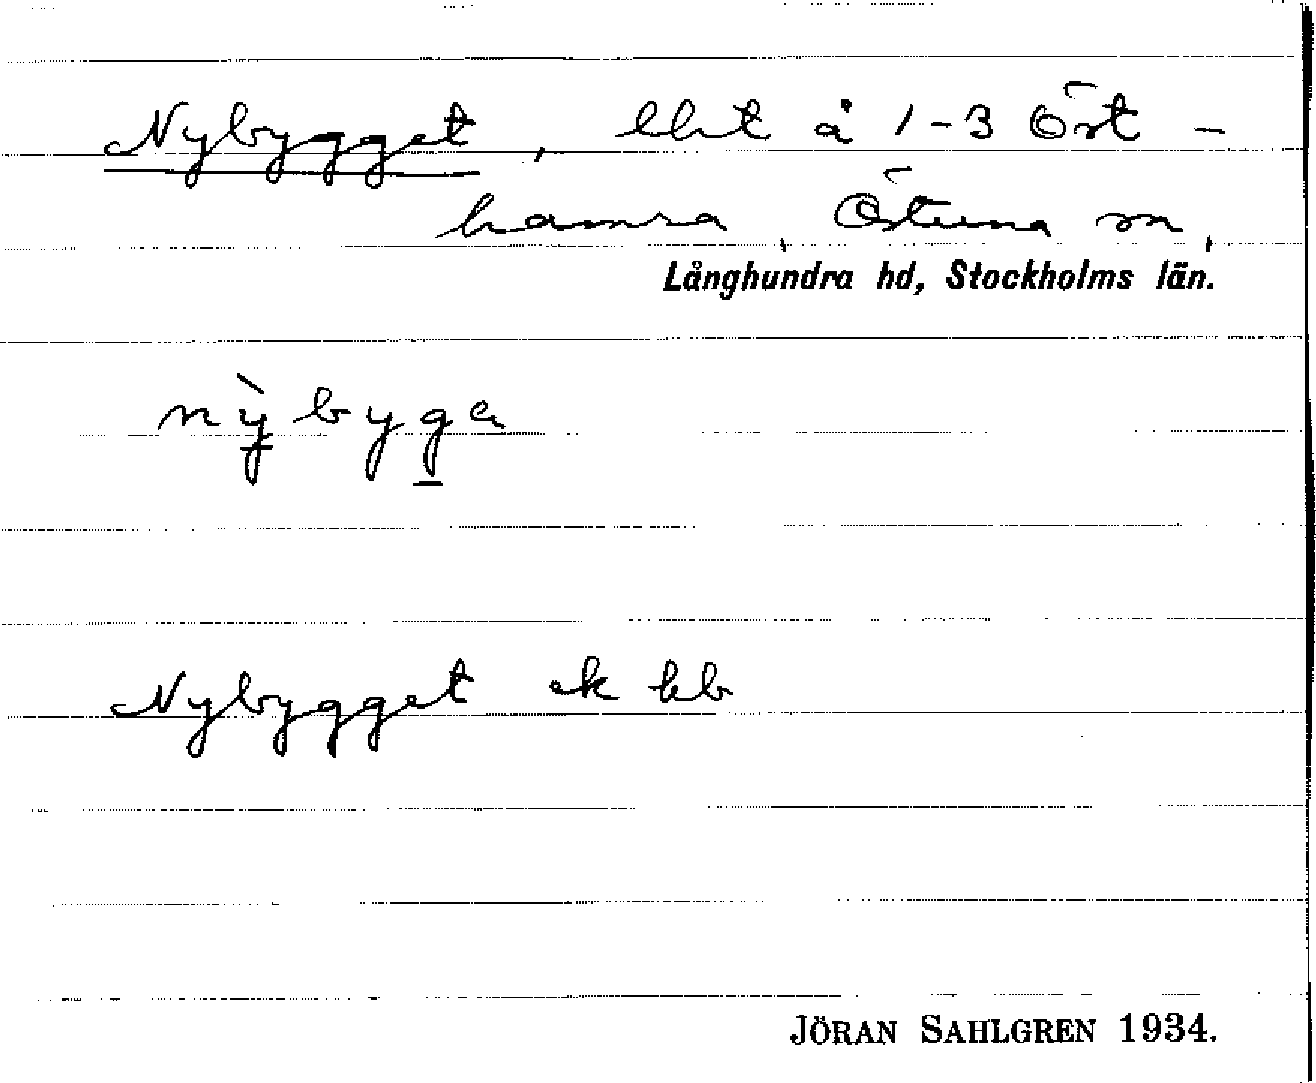 Nybygget, lht å 1-3 Öst-
hamra, Östuna sn,
Långhundra hd, Stockholms län.
nỳbyga
Nybygget ek kb
JÖRAN SAHLGREN 1934.